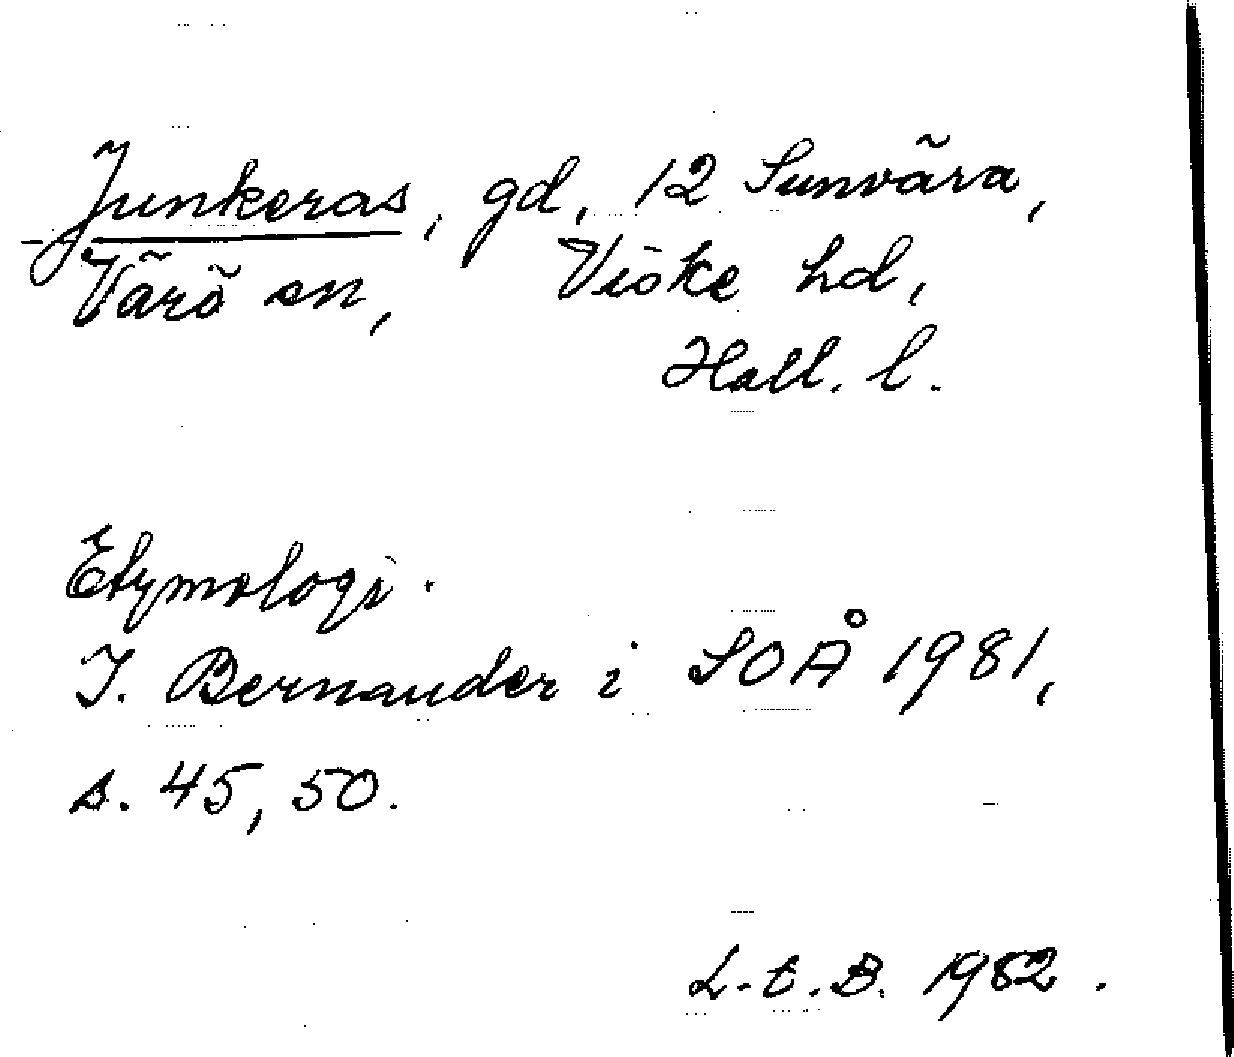 Junkeras, gd, 12 Sunvära,
Värö sn, Viske hd,
Hall. l.
Etymologi.
I. Bernander i SOÅ 1981,
s. 45, 50.
L.E.B. 1982.